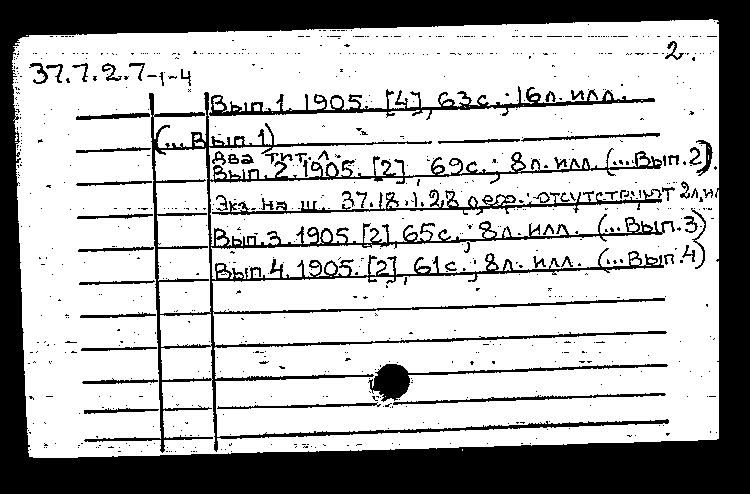 2.
37.7.2.7-1-4
Вып.1. 1905. [4], 63с.; 16л. илл.
(...Вып.1)
Два тит. л.
Вып.2. 1905. [2], 69с.; 8л. илл. (...Вып.2).
Экз. на ш. 37.18.1.28 деф.: отсутствуют 2л. ил
Вып.3. 1905. [2], 65с.; 8л. илл. (...Вып.3)
Вып.4. 1905. [2], 61с.; 8л. илл. (...Вып.4)